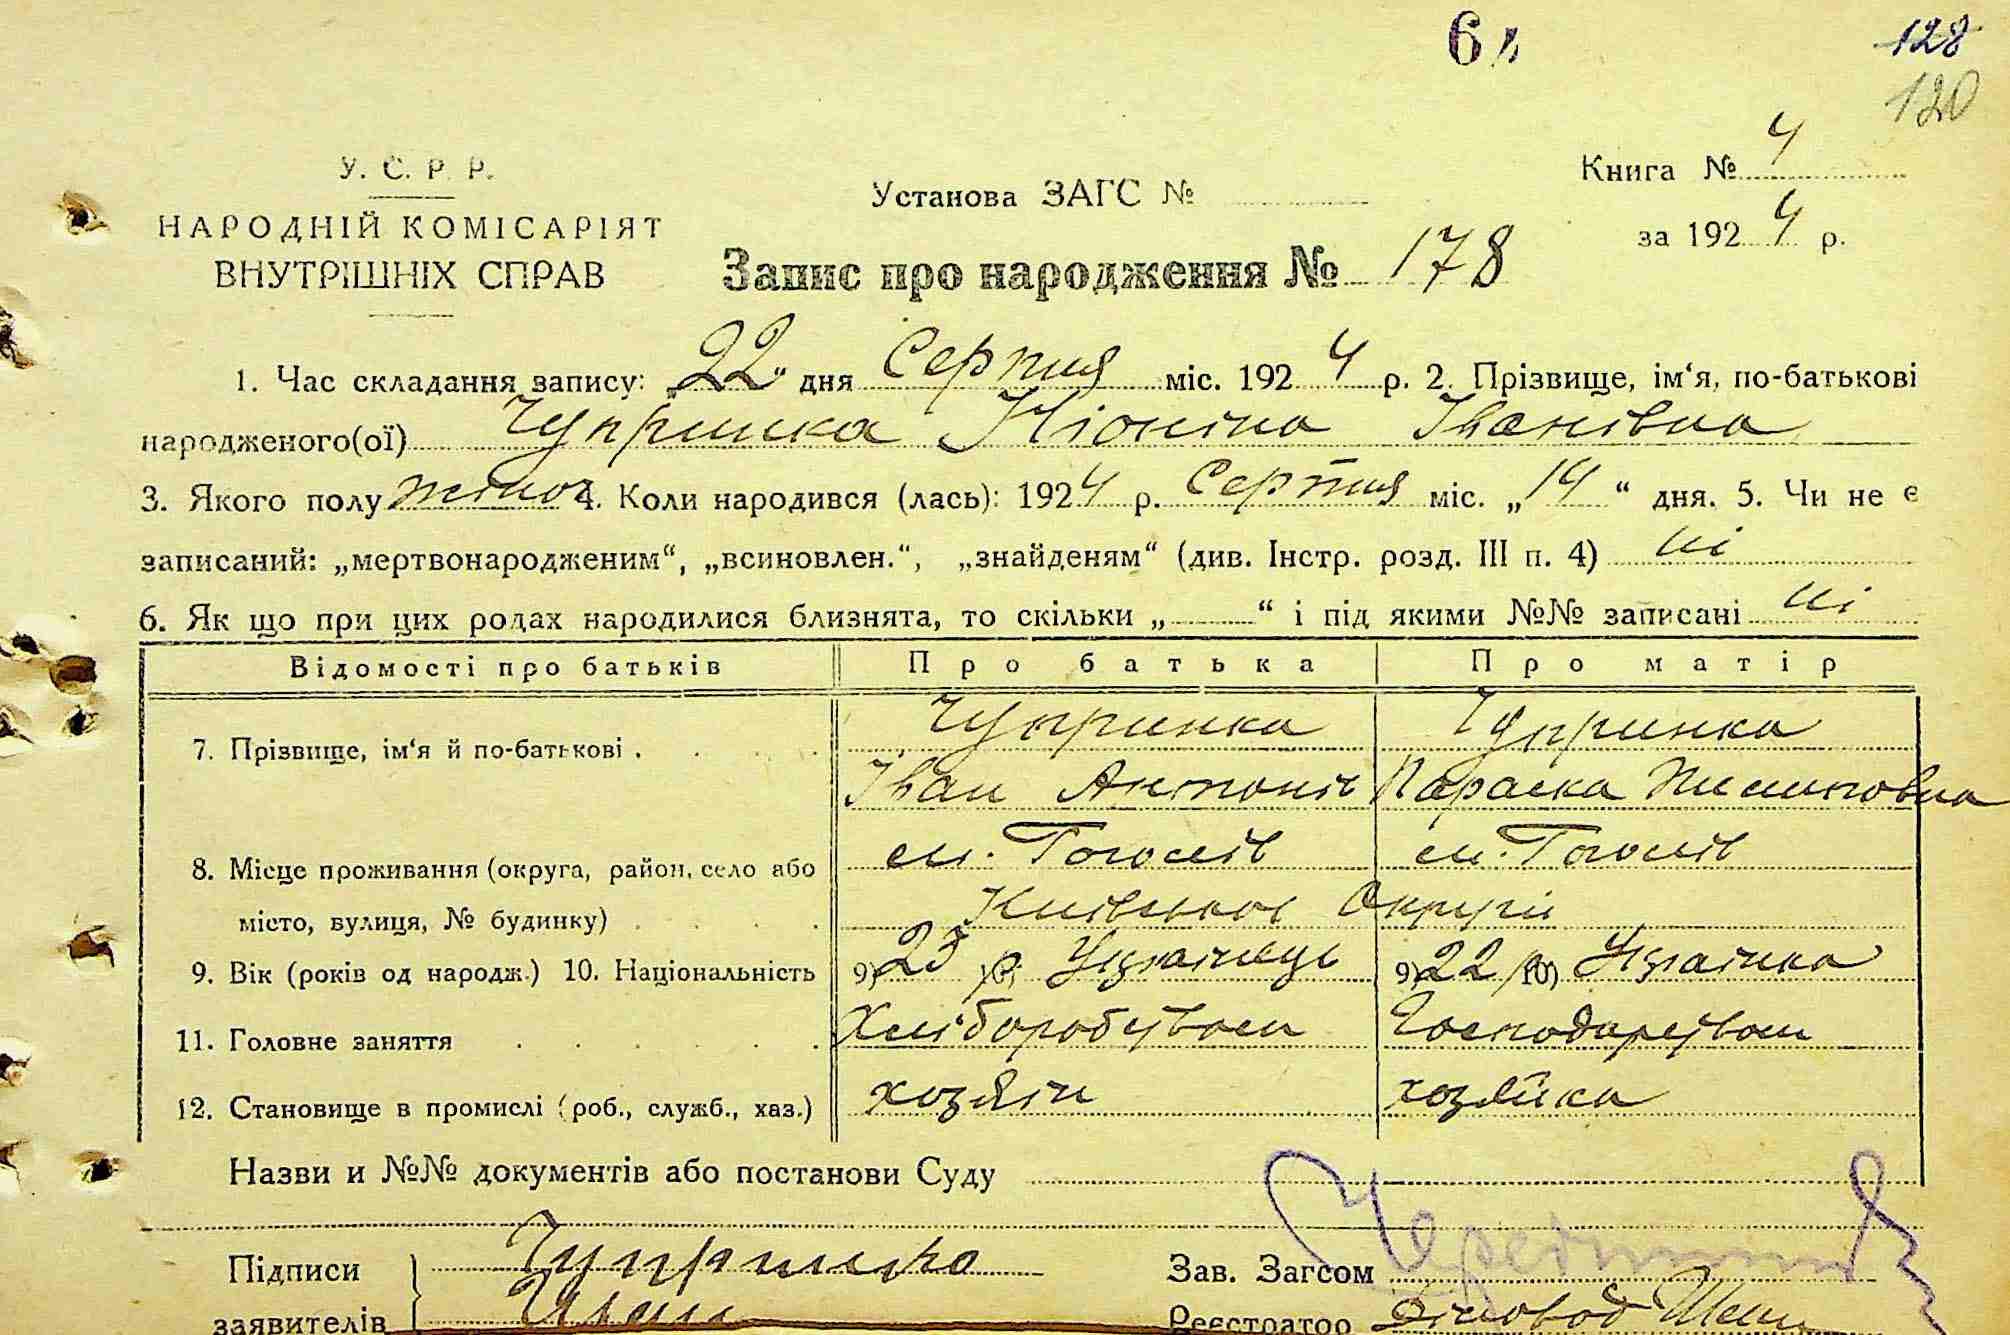 6
128
120
У. С. Р. Р.
НАРОДНІЙ КОМІСАРІЯТ
ВНУТРІШНІХ СПРАВ
Установа ЗАГС №
Книга № 4
за 1924 р.
Запис про народження № 178
1. Час складання запису: 22 дня Серпня міс. 1924 р. 2. Прізвище, ім‘я, по-батькові
народженого(ої) Чупринка Ніоніла Іванівна
3. Якого полу жіноч 4. Коли народився (лась): 1924 р. Серпня міс. „14“ дня. 5. Чи не є
записаний: „мертвонародженим“, „всиновлен.“, „знайденям“ (див. Інстр. розд. III п. 4) ні
6. Як що при цих родах народилися близнята, то скільки „ “ і під якими №№ записані ні
Відомості про батьків Про батька Про матір
7. Прізвище, ім‘я й по-батькові . Чупринка Чупринка
Іван Антонів Параска
8. Місце проживання (округа, район, село або м. Гоголів м. Гоголів
місто, вулиця, № будинку) Київської Округи
9. Вік (років од народж.) 10. Національність 9) 23 10) Українець 9) 22 10) Українка
11. Головне заняття Хліборобством Господарством
12. Становище в промислі (роб., служб., хаз.) хозяін хозяйка
Назви и №№ документів або постанови Суду
Підписи Чупринко Зав. Загсом
заявителів Иван Реєстратор Діловод